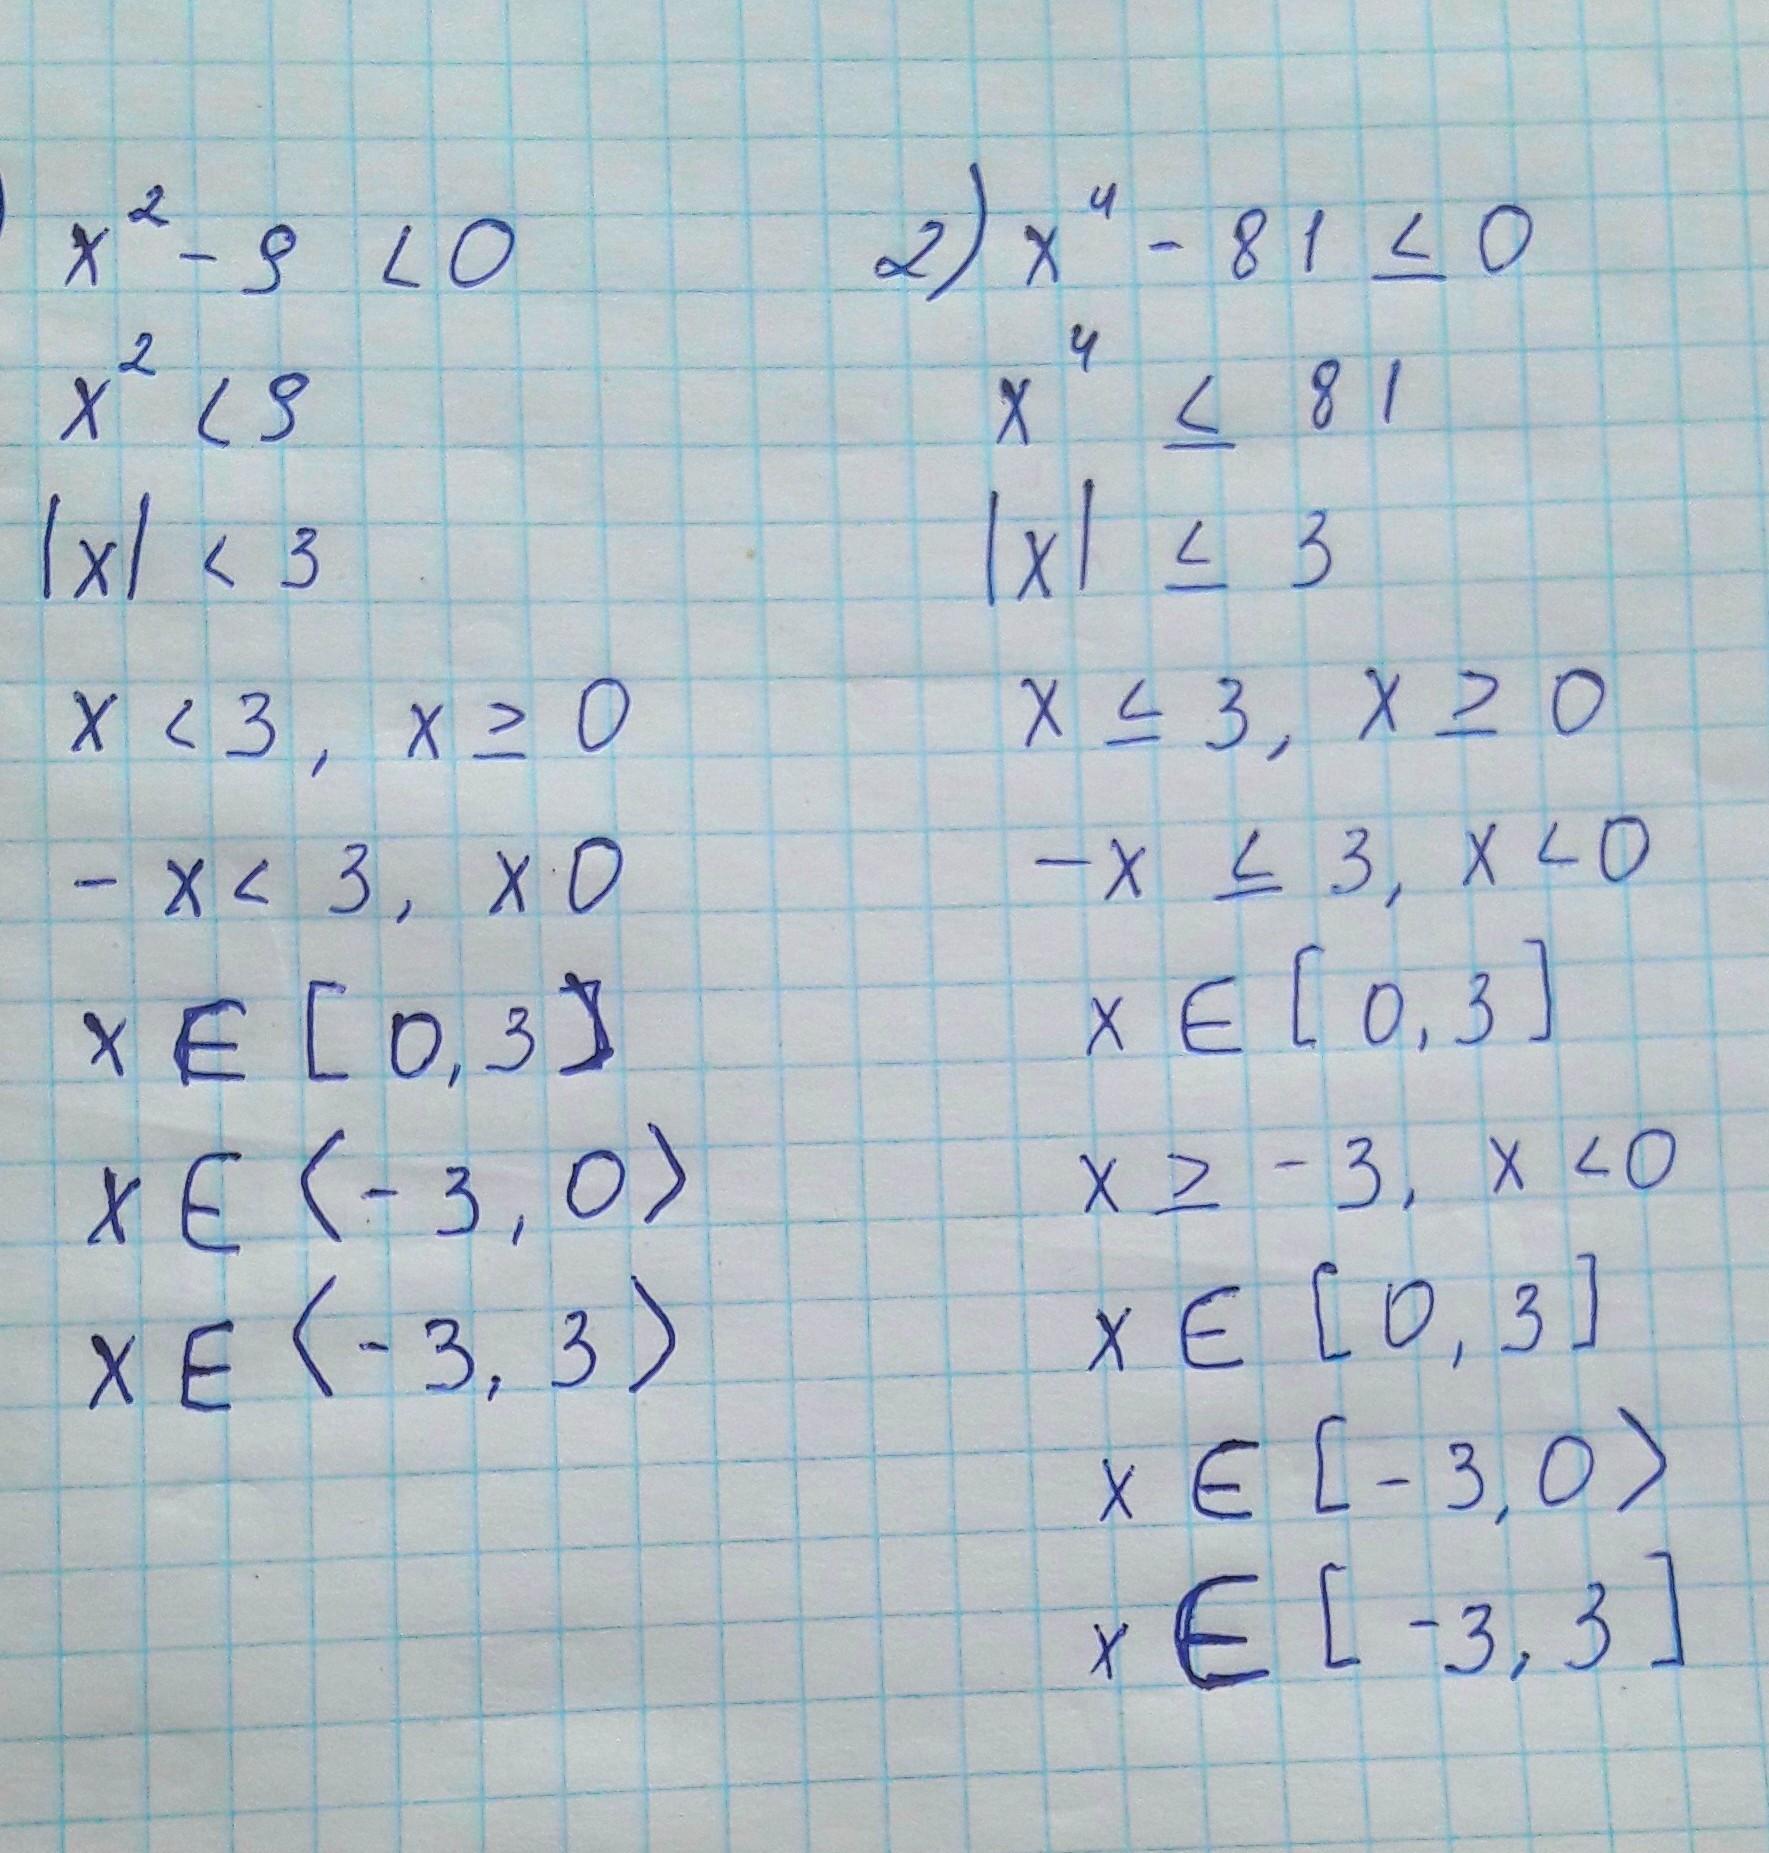 ) x² - 9 < 0
x² < 9
|x| < 3
x < 3, x ≥ 0
- x < 3, x 0
x ∈ [ 0, 3 ]
x ∈ ⟨ - 3, 0 ⟩
x ∈ ⟨ - 3, 3 ⟩
2) x⁴ - 81 ≤ 0
x⁴ ≤ 81
|x| ≤ 3
x ≤ 3, x ≥ 0
- x ≤ 3, x < 0
x ∈ [ 0, 3 ]
x ≥ - 3, x < 0
x ∈ [ 0, 3 ]
x ∈ [ - 3, 0 ⟩
x ∈ [ - 3, 3 ]